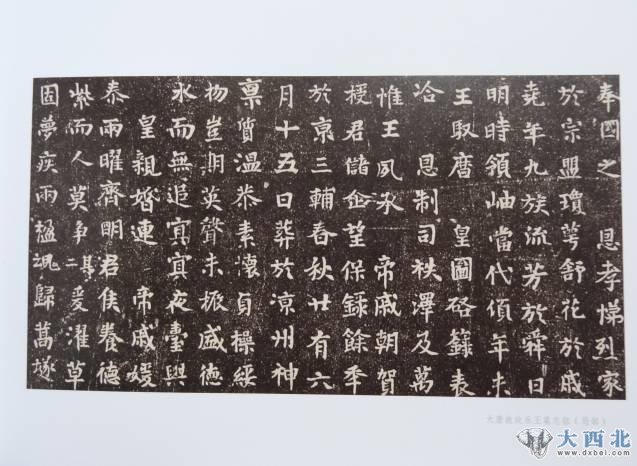 奉國之　恩孝悌烈家
於宗盟瓊萼舒花於戚
堯年九族流芳於舜日
明時領岫當代傾年未
王取磨　皇圖硌錄表
洽　恩制司袟澤及萬
惟王夙承　帝戚朝賀
授君儲企望保錄餘季
於京三輔春秋廿有六
月十五日葬於涼州神
稟質溫恭素懷貞操綏
物豈期英聲未振盛德
永而無追寘寘夜臺與
皇親婚連　帝戚媛
泰兩曜齊明君侯養德
紫而人莫爭二其爰濯草
固夢疾兩楹魂歸蒿邃
大西北
www.dxbei.com